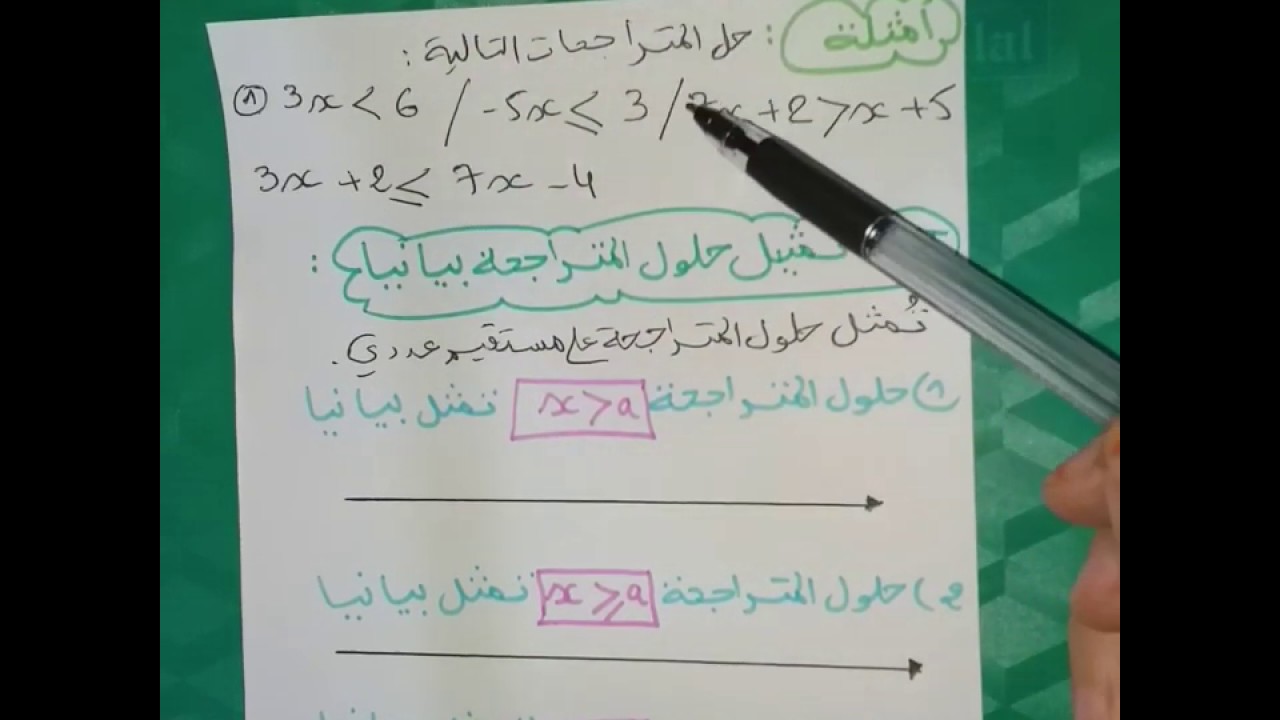 أمثلة : حل المتراجحات التالية :
① 3x < 6 / -5x ≤ 3 / x + 2 > x + 5
3x + 2 ≤ 7x - 4
تمثيل حلول المتراجحة بيانيا :
تُمثل حلول المتراجحة على مستقيم عددي .
1) حلول المتراجحة x > a تمثل بيانيا
2) حلول المتراجحة x ≥ a تمثل بيانيا